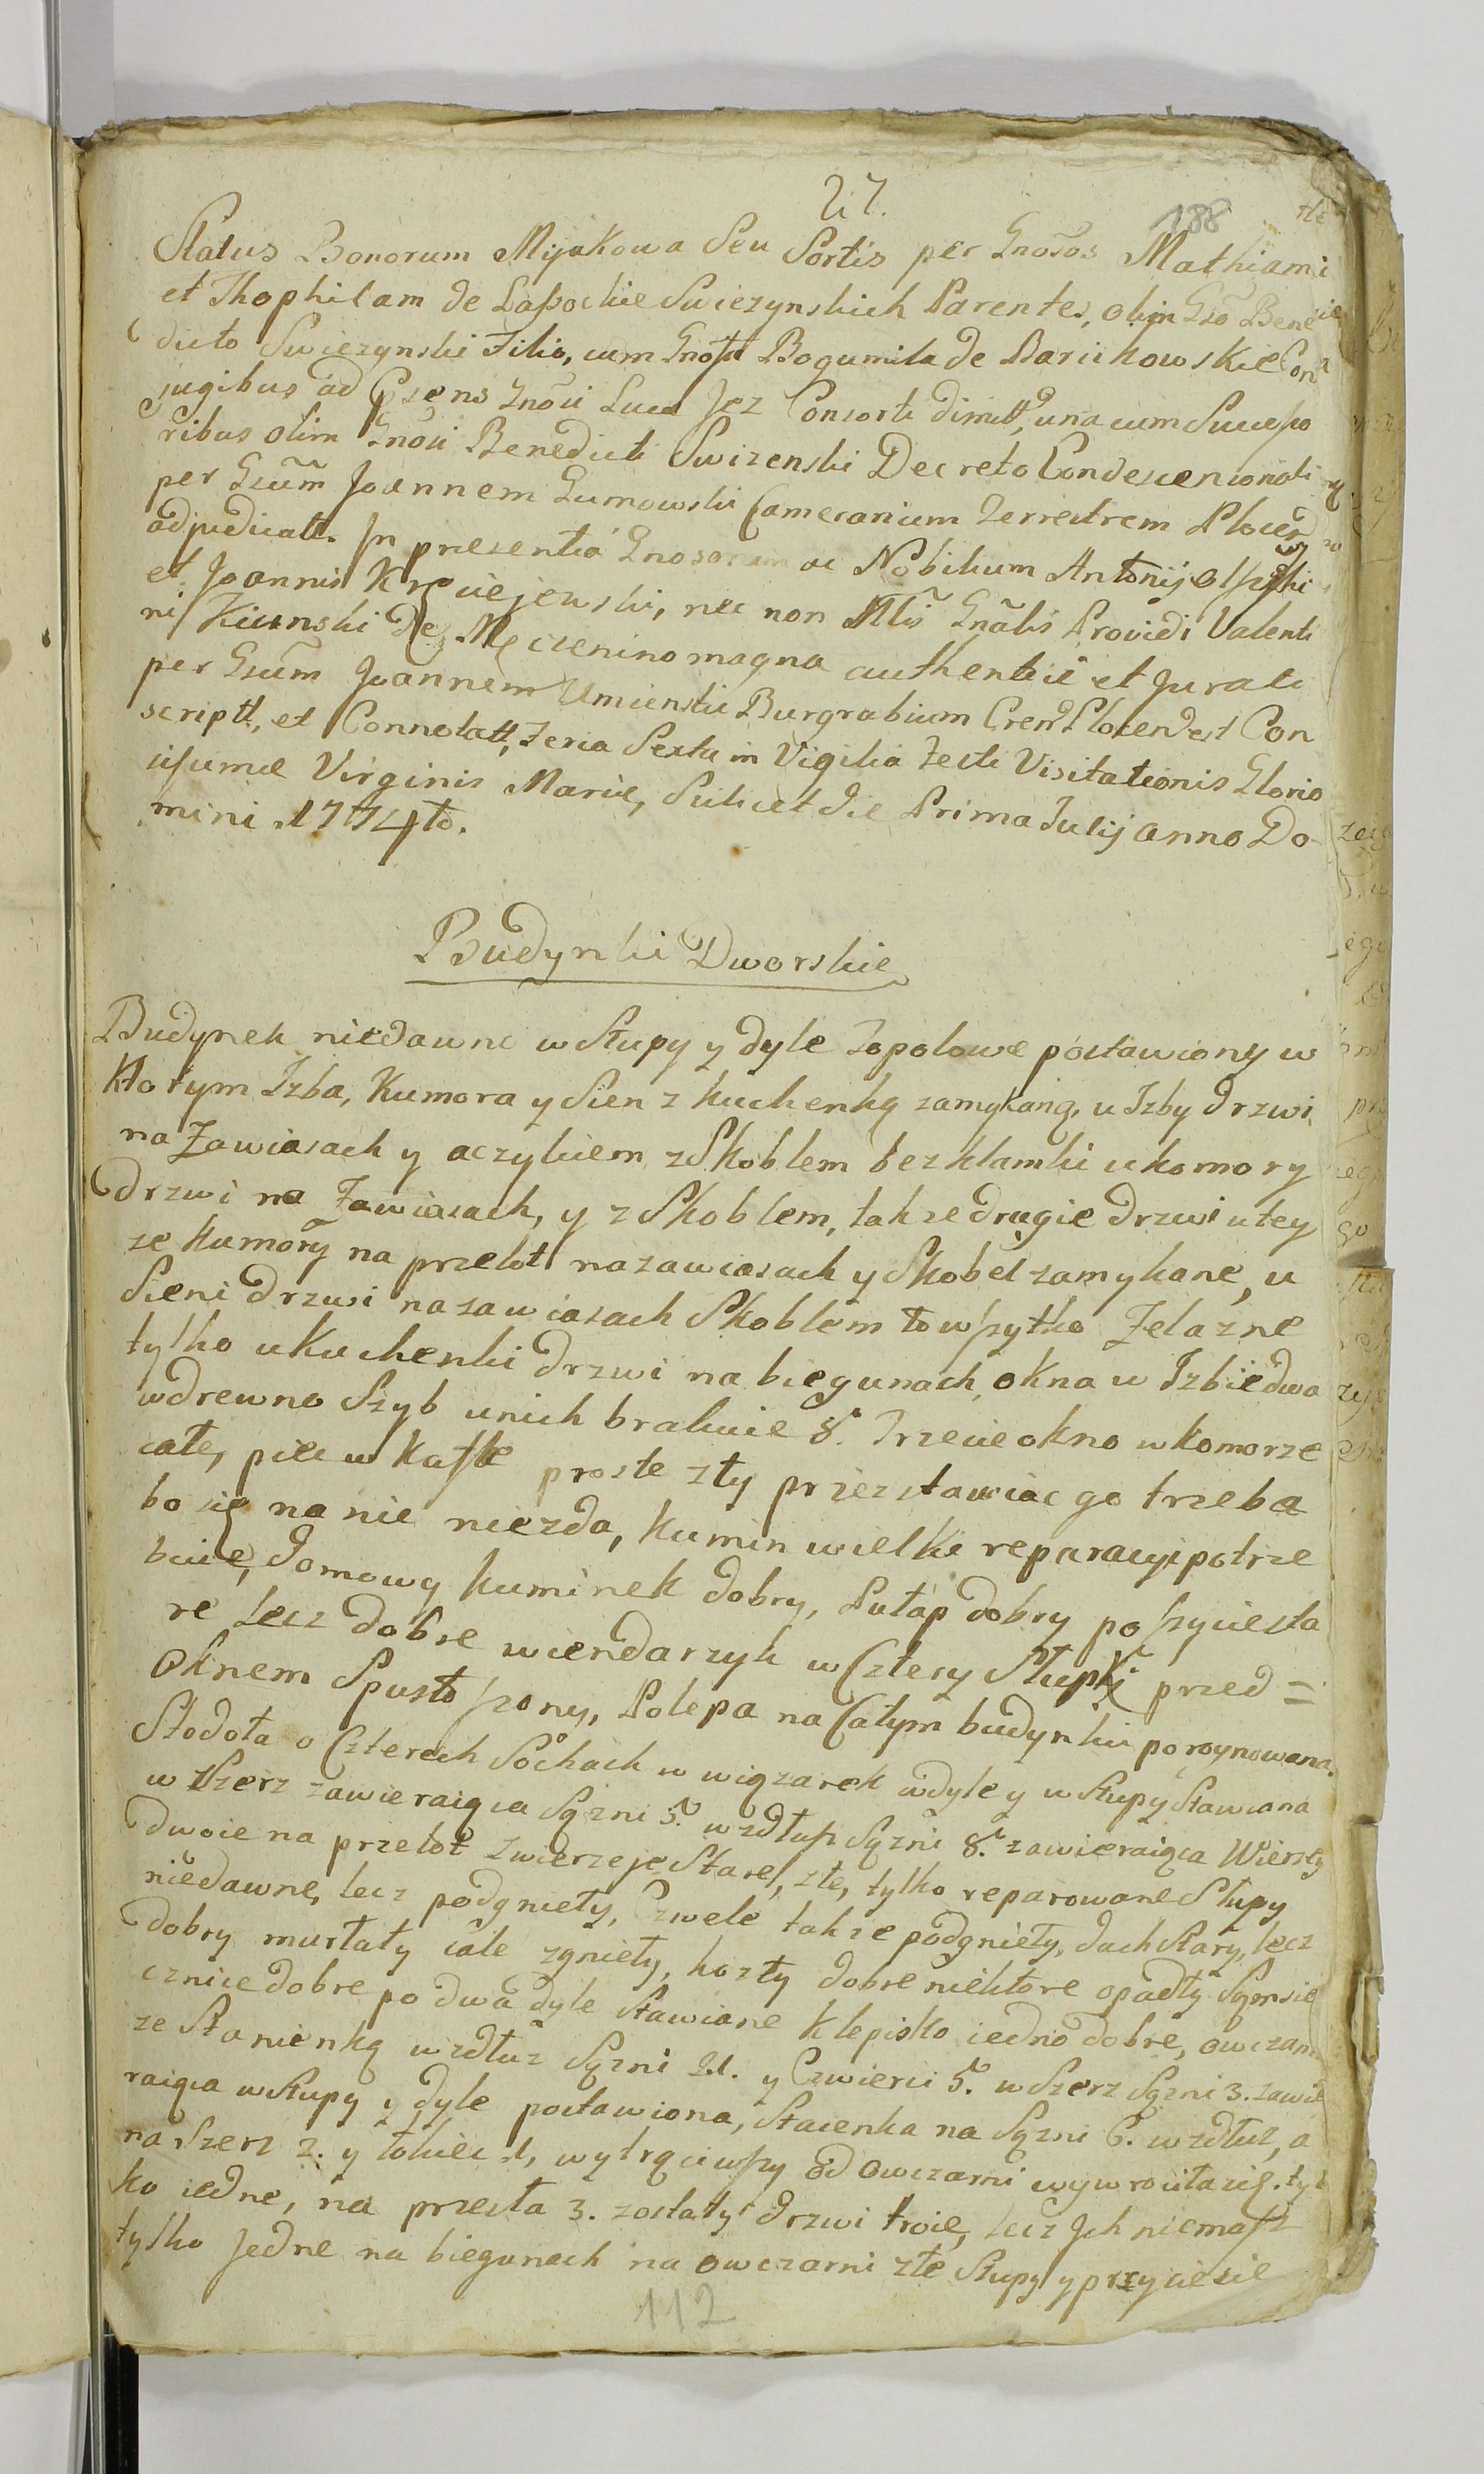 27.
188
Status Bonorum Mijakowa Seu Sortis per Gnosos Mathiam
et Thophilam de Lassockie Swiezynskich Parentes, olim Gso Bene
dicto Swiezynski Filio, cum Gnosa Bogumila de Barcikowskie Con
jugibus ad Psens Gnosi Luca Jez Consorti dimitt, una cum Successo
ribus olim Gnosi Benedicti Swizenski Decreto Condescensionali
per Gsum Joannem Gumowski Camerarium Terrestrem Plocen
adjudicatt. In presentia Gnosorum ac Nobilium Antonij
et Joannis Krociejewski, nec non Mlis Gnalis Providi Valenti
ni Kicinski De Męczenino magna authentici et Jurati
per Gsum Joannem Umienski Burgrabium Cren Plocen est Con
scriptt, et Connotatt, Feria Sexta in Vigilia Festi Visitationis Glorio
sissimæ Virginis Mariæ, Scilicet die Prima Julij anno Do-
mini 1774to.
Budynki Dworskie
Budynek niedawni w Słupy y dyle Topolowe postawiony w
Ktotym Izba, Kumora y Sien z kuchenką zamykaną, u Izby drzwi
na Zawiasach y aczykiem z Skoblem bez klamki u komory
drzwi na Zawiasach, y z Skoblem, takze drugie drzwi u tey
ze kumory na przelot na zawiasach y Skobel zamykane, u
Sieni drzwi na zawiasach Skoblem to wszytko Zelazne
tylko u Kuchenki drzwi na biegunach, okna w Izbie dwa
w drewno Szyb u nich brakuie 8. Trzecie okno w komorze
całe, piec w Kafle proste zły przestawiac go trzeba
bo się na nic niezda, kumin wielki reparacyi potrze
buie, domowy kuminek dobry, Pułap dobry poszycie sta
re lecz dobre wiendarzyk w Cztery Słupki przed =
Oknem Spustoszony, Polepa na Całym budynku poroynowana.
Stodoła o Czterech Sochach w wiązarek w dyle y w Słupy Stawiana
w Szerz zawieraiąca Sązni 5. wzdłusz Sązni 8. zawieraiąca Wierzey
dwoie na przelot Zwierzeje Stare, złe, tylko reparowane Słupy
niedawne, lecz podgnieły, Czwele takze podgnieły, dach Stary, lecz
dobry murłaty całe zgnieły, kozły dobre niektore opadły Sąmsie
cznice dobre po dwa dyle Stawiane Klepisko iedno dobre, owczarn
ze Stanienką wzdłuz Sązni 21. y Czwierci 5. w Szerz Sązni 3. zawie
raiąca w Słupy y dyle postawiona, Stacenka na Sązni 6. wzdłuz, a
na Szerz 2. y łokiec 1, wytrąciwszy od owczarni wywrociła się. tyl
ko iedne, na przesła 3. zostały drzwi troie, lecz Jch niemasz
tylko Jedne na biegunach na owczarni złe Słupy y przyciesie
112